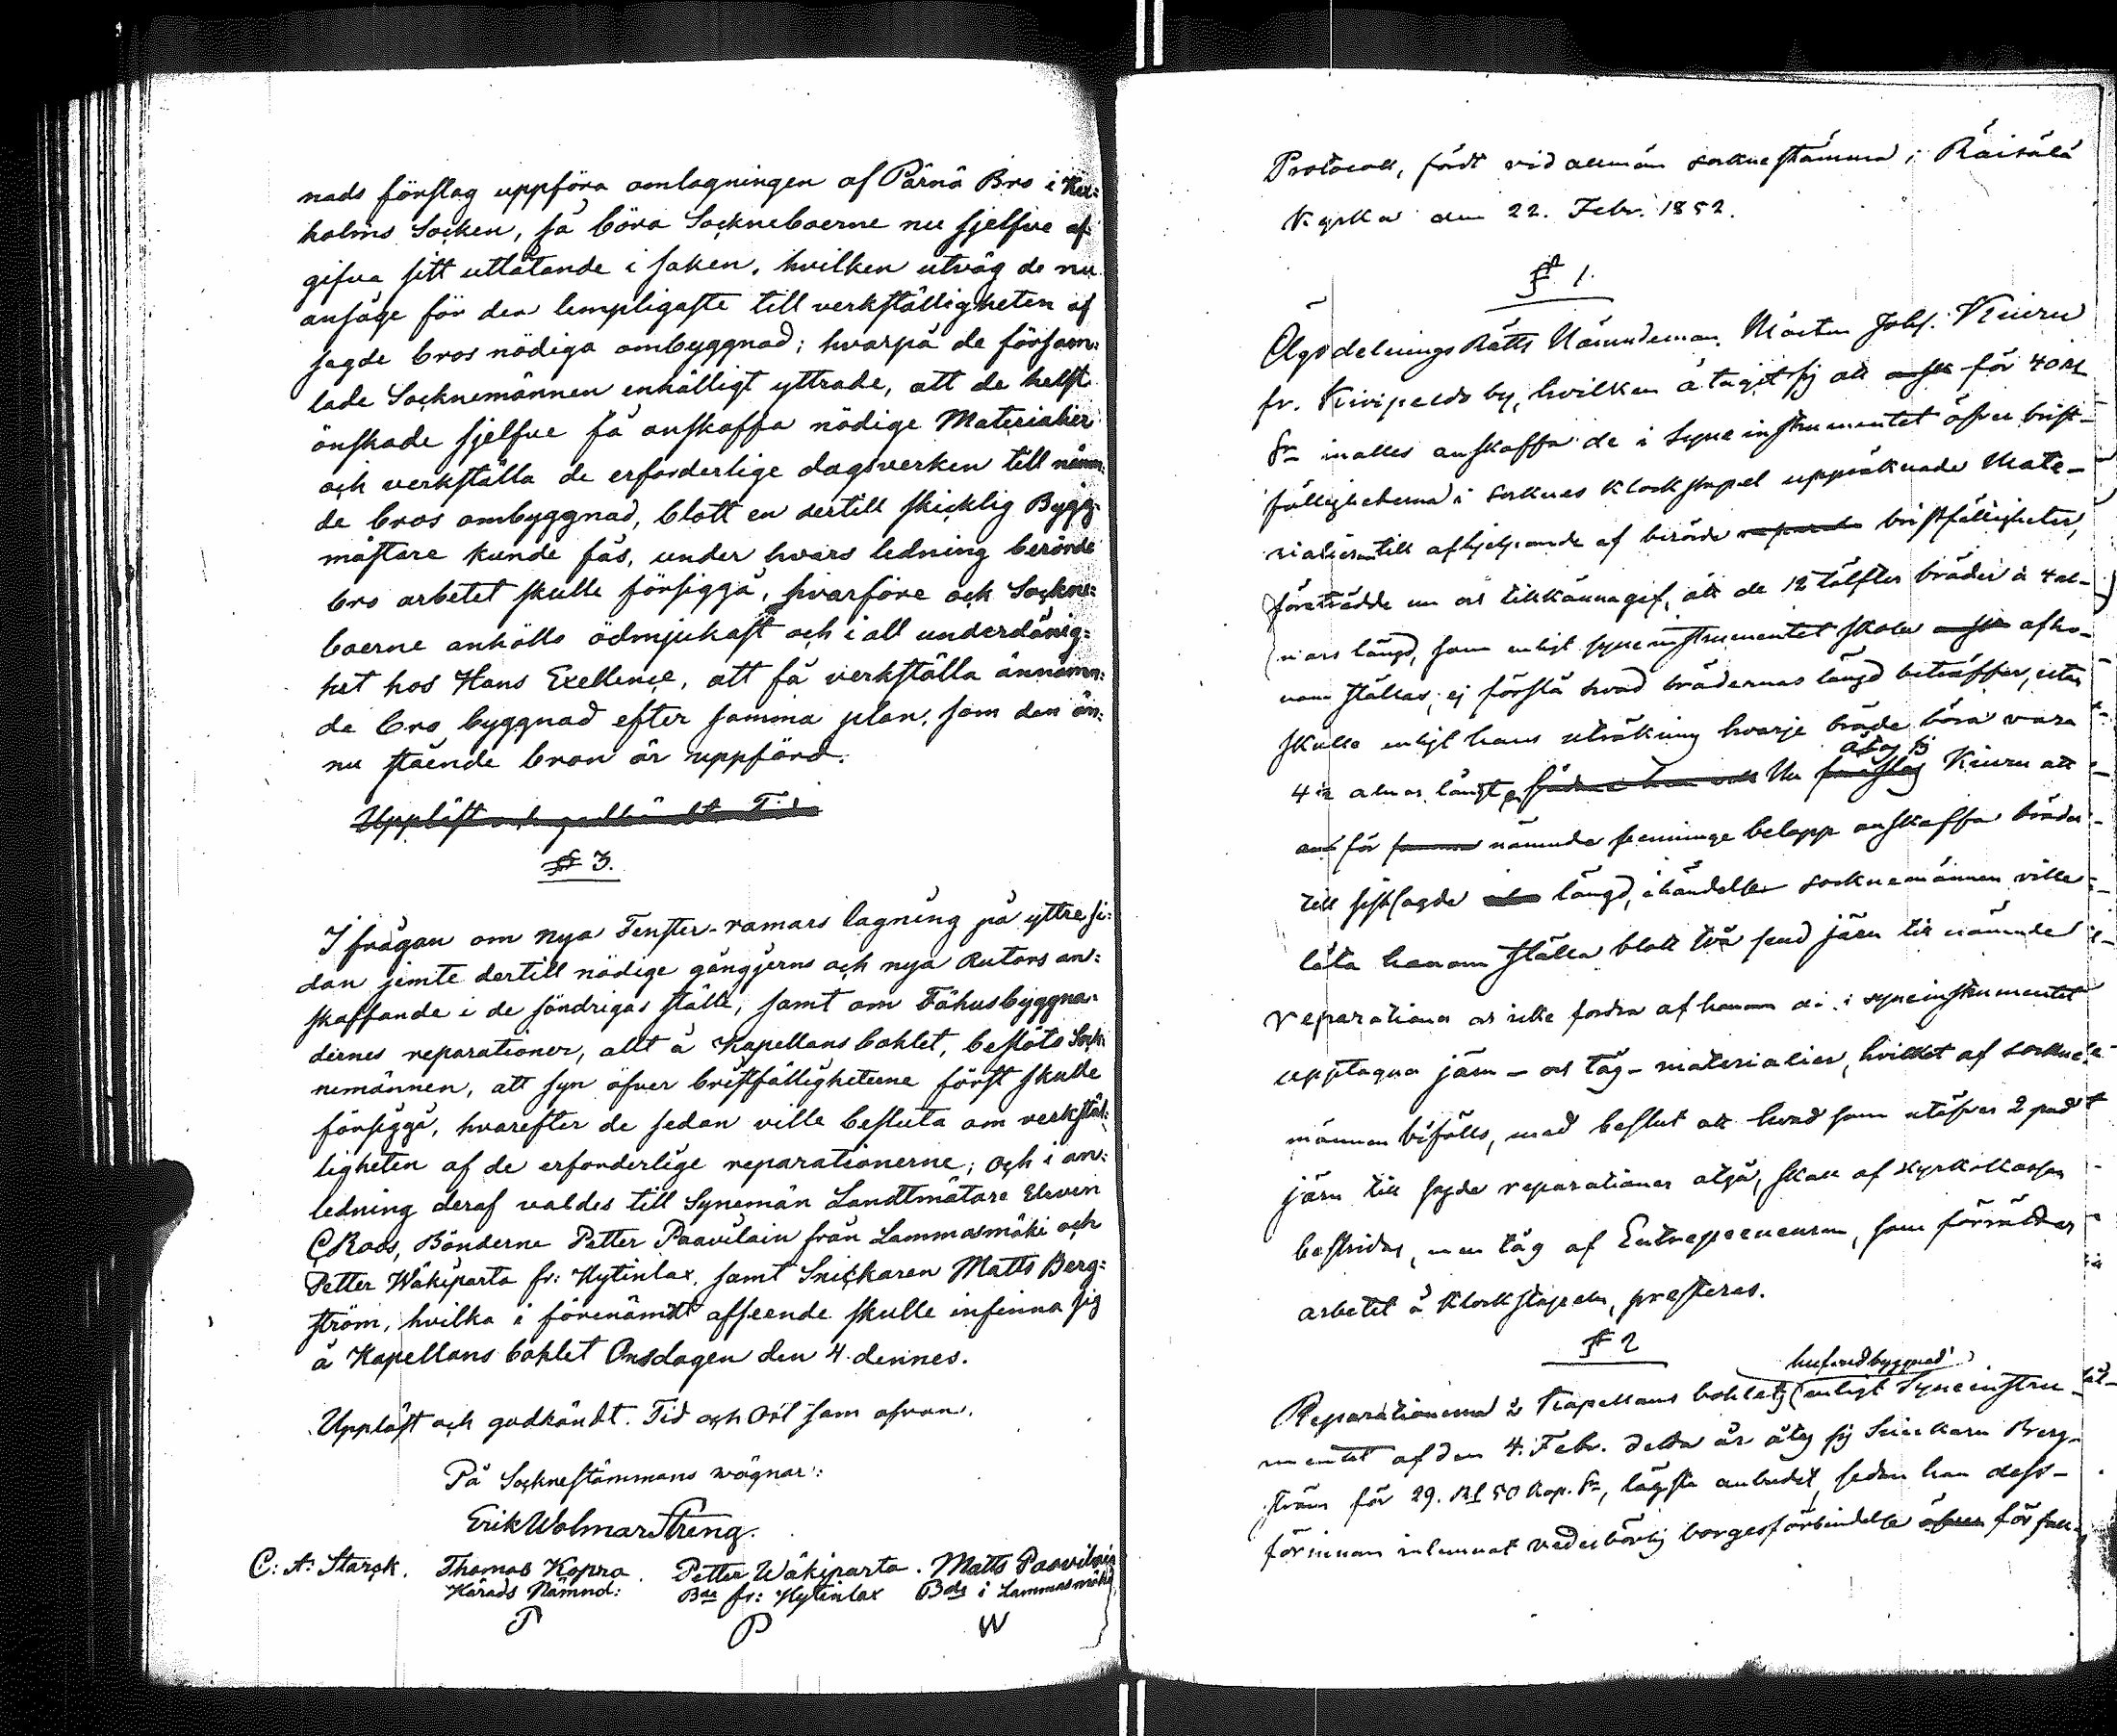 nads förslag uppföra omlagningen af Pärnä Bro i Kex:
holms Socken, så böra Sockneboerne nu sjelfve af:
gifva sitt utlåtande i saken, hvilken utväg de nu
ansåge för den lempligaste till verkställigheten af
sagde bros nödiga ombyggnad; hvarpå de försam:
lade Socknemännen enhälligt yttrade, att de helst
önskade sjelfve få anskaffa nödige Materialier
och verkställa de erforderlige dagsverken till nämn:
de bros ombyggnad, blott en dertill skicklig Bygg:
mästare kunde fås, under hvars ledning berörde
bro arbetet skulle försiggå, hvarföre ock Sockne:
boerne anhöllo ödmjukast och i all underdånig:
het hos Hans Excellence, att få verkställa ännämn:
de bro byggnad efter samma plan, som den än:
nu stående bron är uppförd.
Uppläst och godkändt. Tid
§ 3.
I frågan om nya Fenster-ramars lagning på yttre si:
dan jemte dertill nödige gångjerns och nya Rutors an:
skaffande i de söndrigas ställe, samt om Fähusbyggna:
dernes reparationer, allt å Kapellans bohlet, beslöto Sock:
nemännen, att syn öfver bristfälligheterne först skulle
försiggå, hvarefter de sedan ville besluta om verkstäl:
ligheten af de erforderlige reparationerne; och i an:
ledning deraf valdes till Synemän Landtmätare Eleven
C Roos, Bönderne Petter Paavilain från Lammasmäki och
Petter Wäkiparta fr: Hytinlax, samt Snickaren Matts Berg:
ström, hvilka i förenämdt afseende skulle infinna sig
å Kapellans bohlet Onsdagen den 4 dennes.
Uppläst och godkändt. Tid och Ort som ofvan.
På Socknestämmans vägnar:
Erik Wolmar Streng.
C: A: Starck. Thomas Kopra. Petter Wäkiparta. Matts Paavilain
Härads Nämnd: Bde fr: Hytinlax Bde i Lammasmäki
P P W
Protocoll, fördt vid allmän socknestämma i Räisälä
Kyrka den 22. Febr. 1852.
§ 1.
Ägodelnings Rätts Nämndeman Mårten Johs. Kiuru
fr. Kivipeldo by, hvilken åtagit sig att för 40 R
Sr inalles anskaffa de i Syneinstrumentet öfver brist-
fälligheterna i socknes klockstapel uppräknade Mate-
rialier till afhjelpande af berörde bristfälligheter,
företrädde nu och tillkännagaf, att de 12 tälfter bräder à 4 al-
nars längd, som enligt syneinstrumentet skola afho-
nom ställas, ej förslå hvad brädernas längd beträffar, utan
skulle enligt hans uträkning hvarje bräde böra vara
åtog sig
4½ alnar långt, Nu Kiuru att
för nämnde penninge belopp anskaffa bräder
till sistsagde längd, i händelse socknemännen ville
låta honom ställa blott två pud järn till nämnde
reparationer och icke fordra af honom de i syneinstrumentet
upptagna järn- och tåg-materialier, hvilket af sockne-
männen bifölls, med beslut att hvad som utöfver 2 pud
järn till sagde reparationer åtgå, skall af kyrkokassan
bestridas, men tåg af Entrepreneuren, som förrättar
arbetet å klockstapeln, presteras.
§ 2
hufvudbyggnad
Reparationerna å Kapellans bohlets (enligt Syneinstru-
mentet af den 4. Febr. detta år åtog sig Snickarn Berg-
ström för 29. Rf 50 kop. Sr, lägsta anbudet, sedan han dess-
förinnan inlemnat vederbörlig borgesförbindelse för full-